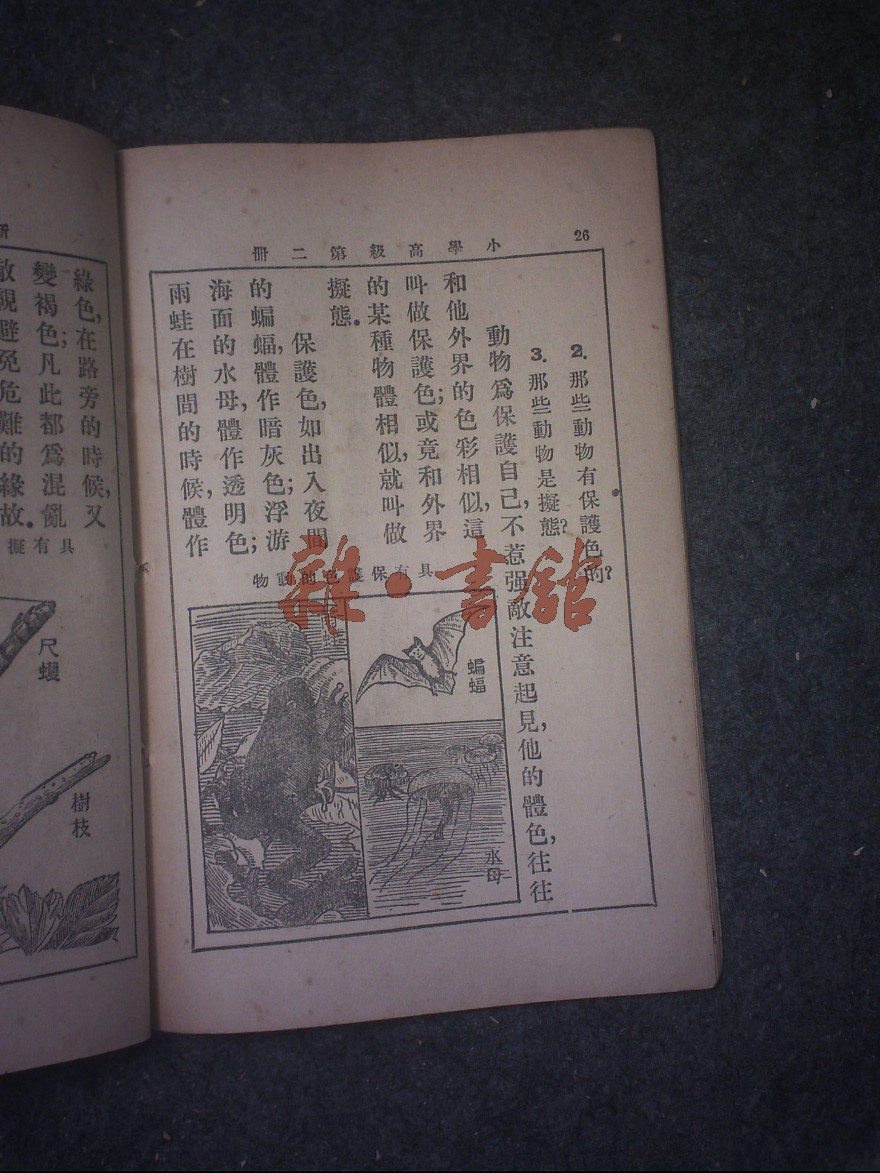 26
小學高級第二冊
2. 那些動物有保護色的?
3. 那些動物是擬態?
動物爲保護自己,不惹强敵注意起見,他的體色,往往
和他外界的色彩相似,這
叫做保護色;或竟和外界
的某種物體相似,就叫做
擬態。
保護色,如出入夜間
的蝙蝠,體作暗灰色;浮游
海面的水母,體作透明色;
雨蛙在樹間的時候,體作
具有保護色的動物
蝙蝠
水母
雨蛙
雜·書館
綠色,在路旁的時候,又
變褐色;凡此都爲混亂
敵視避免危難的緣故。
具有擬
尺蠖
樹枝